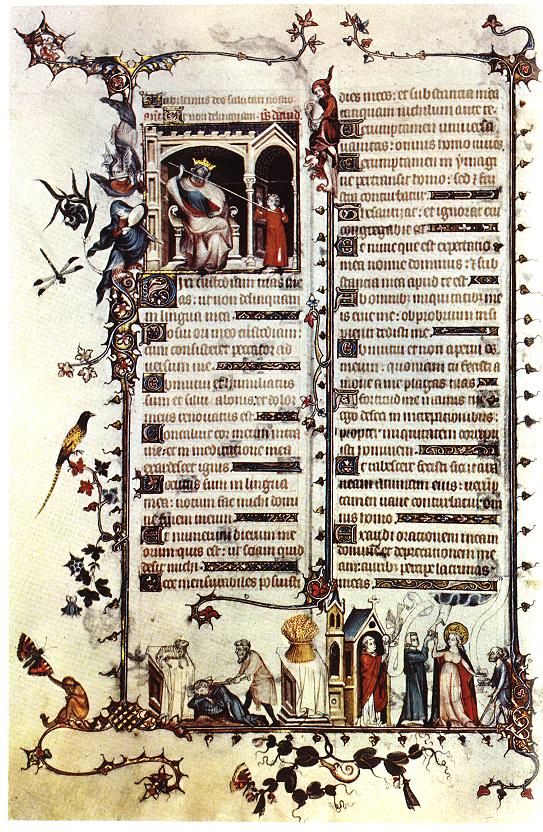 Jubilemus deo salutari nostro
non delinquam. ps david.
Dixi custodiam vias me
as: ut non delinquam
in lingua mea.
Posui ori meo custodiam
cum consisteret peccator ad
versum me.
Obmutui et humiliatus
sum et silui a bonis: et dolor
meus renovatus est.
Concaluit cor meum intra
me: et in meditatione mea
exardescet ignis
Locutus sum in lingua
mea: notum fac michi domi
ne finem meum
Et numerum dierum me
orum quis est: ut sciam quid
desit michi.
Ecce mensurabiles posuisti
dies meos: et substancia mea
tanquam nichilum ante te.
Verumptamen universa
vanitas: omnis homo vivens
Verumptamen in ymagi
ne pertransit homo: sed et frus
tra conturbatur
Thesaurizat: et ignorat cui
congregabit ea
Et nunc que est expectatio
mea nonne dominus: et sub
stancia mea apud te est.
Ab omnibus iniquitatibus me
is erue me: obprobrium insi
pienti dedisti me.
Obmutui et non aperui os
meum: quoniam tu fecisti a
move a me plagas tuas
A fortitudine manus tue e
go defeci in increpationibus:
propter iniquitatem corripu
isti hominem.
Et tabescere fecisti sicut ara
neam animam eius: verum
tamen vane conturbatur om
nis homo.
Exaudi orationem meam
domine et deprecationem me
am: auribus percipe lacrimas
meas.